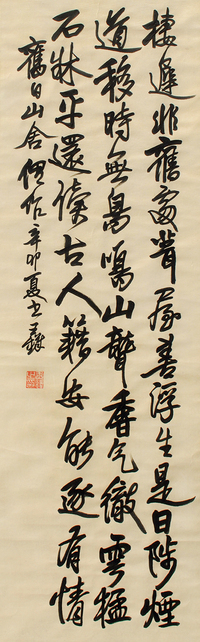 棲遲非舊齋背承善浮生是日陟煙
道移時無鳥鳴山聲香气徹雲檻
石牀平還讀古人籍安能逐有情
舊日山舍偶作辛卯夏書